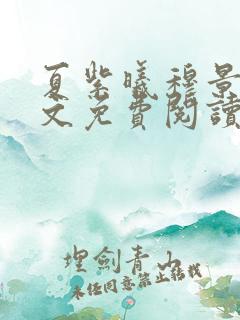 夏紫曦穆景
文免費閱讀
埋劍青山
未經同意禁止轉載